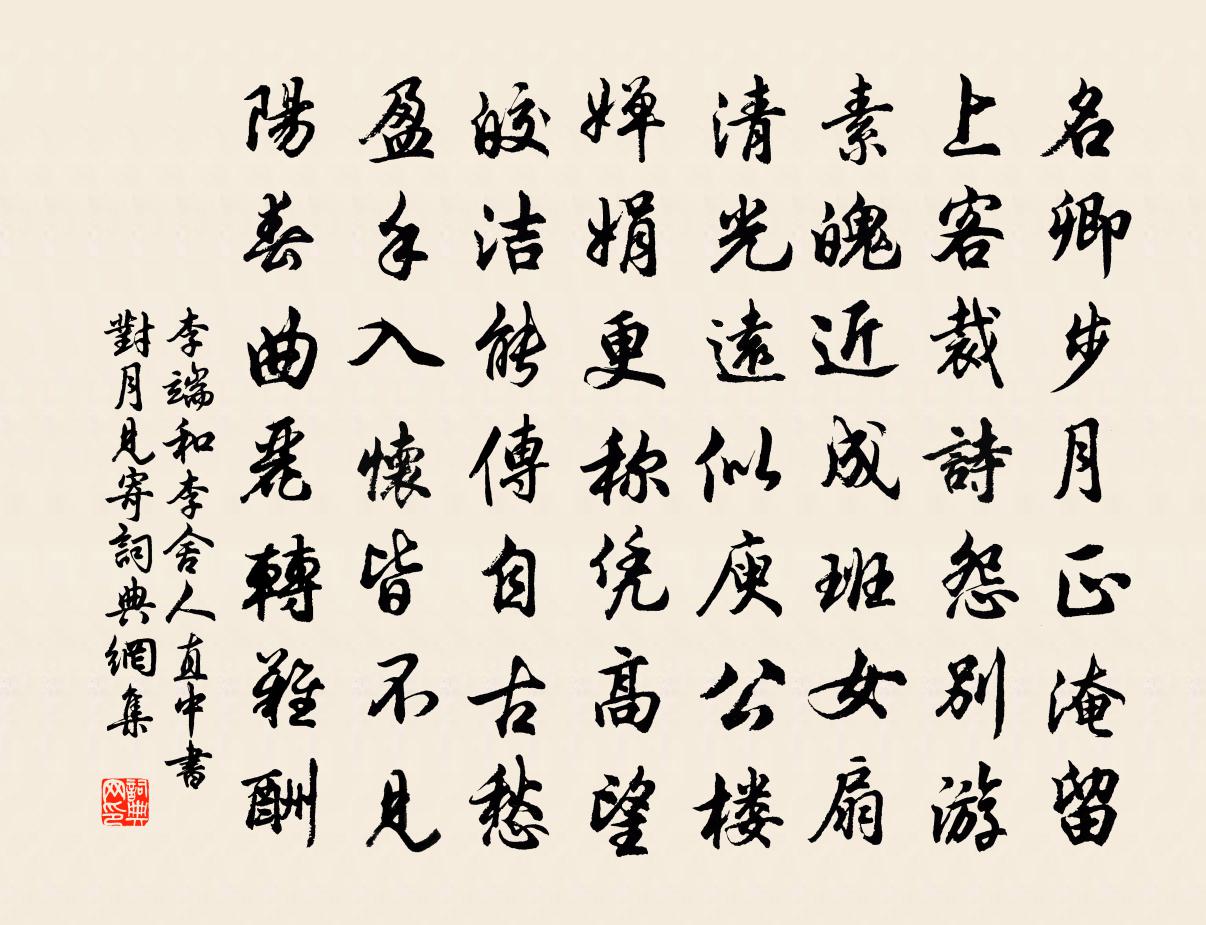 名卿步月正淹留
上客裁詩怨别游
素魄近成班女扇
清光遠似庾公楼
婵娟更称凭高望
皎洁能傳自古愁
盈手入懷皆不見
陽春曲麗轉難酬
李端和李舍人直中書
對月見寄詞典網集
詞典網印